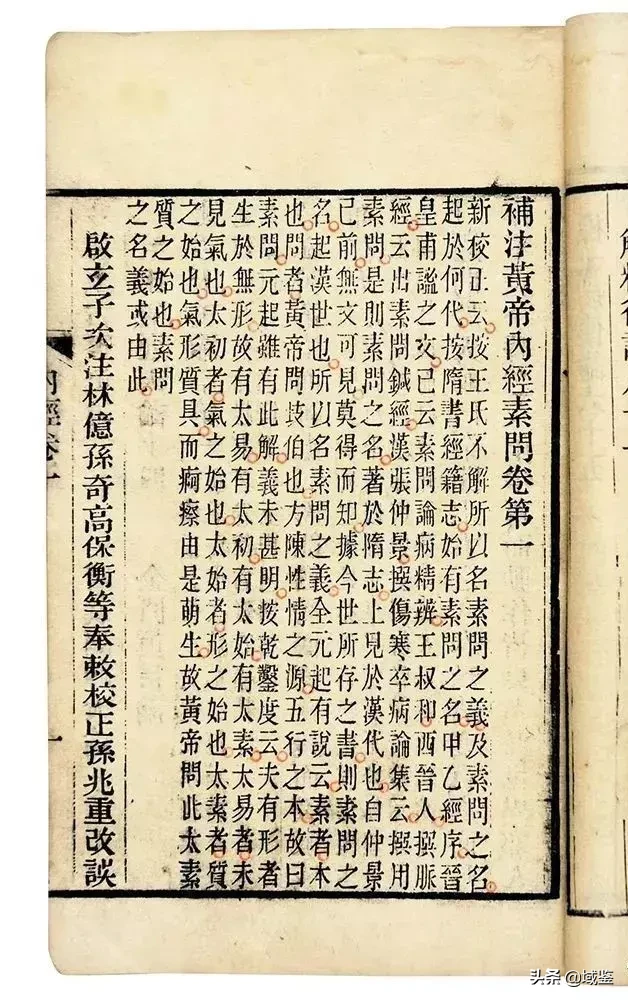 補注黃帝內經素問卷第一
新校正云按王氏不解所以名素問之義及素問之名
起於何代按隋書經籍志始有素問之名甲乙經序晉
皇甫謐之文已云素問論病精辨王叔和西晉人撰脈
經云出素問鍼經漢張仲景撰傷寒卒病論集云撰用
素問是則素問之名著於隋志上見於漢代也自仲景
已前無文可見莫得而知據今世所存之書則素問之
名起漢世也所以名素問之義全元起有說云素者本
也問者黃帝問歧伯也方陳性情之源五行之本故曰
素問元起雖有此解義未甚明按乾鑿度云夫有形者
生於無形故有太易有太初有太始有太素太易者未
見氣也太初者氣之始也太始者形之始也太素者質
之始也氣形質具而痾瘵由是萌生故黃帝問此太素
質之始也素問
之名義或由此
啟玄子次注林億孫奇高保衡等奉敕校正孫兆重改誤
內經卷一
一
头条 @域鉴